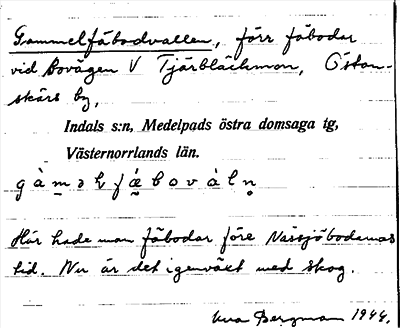 Gammelfäbodvallen, förr fäbodar
vid Bovägen V Tjärbläckmon, Östan-
skärs by,
Indals s:n, Medelpads östra domsaga tg,
Västernorrlands län.
Här hade man fäbodar före Vässjöbodarnas
tid. Nu är det igenväxt med skog.
Bergman 1944.